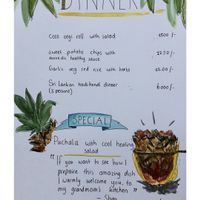 DINNER
Coco vegi roll with salad 1500 /-
Sweet potato chips with
healthy sauce 1250 /-
Garlic veg red rice with herbs
Sri Lankan traditional dinner 6000 /-
(2 persons)
SPECIAL
Pachala with cool healing
salad
"If you want to see how I
prepare this amazing dish
I warmly welcome you, to
my grandmom's kitchen"